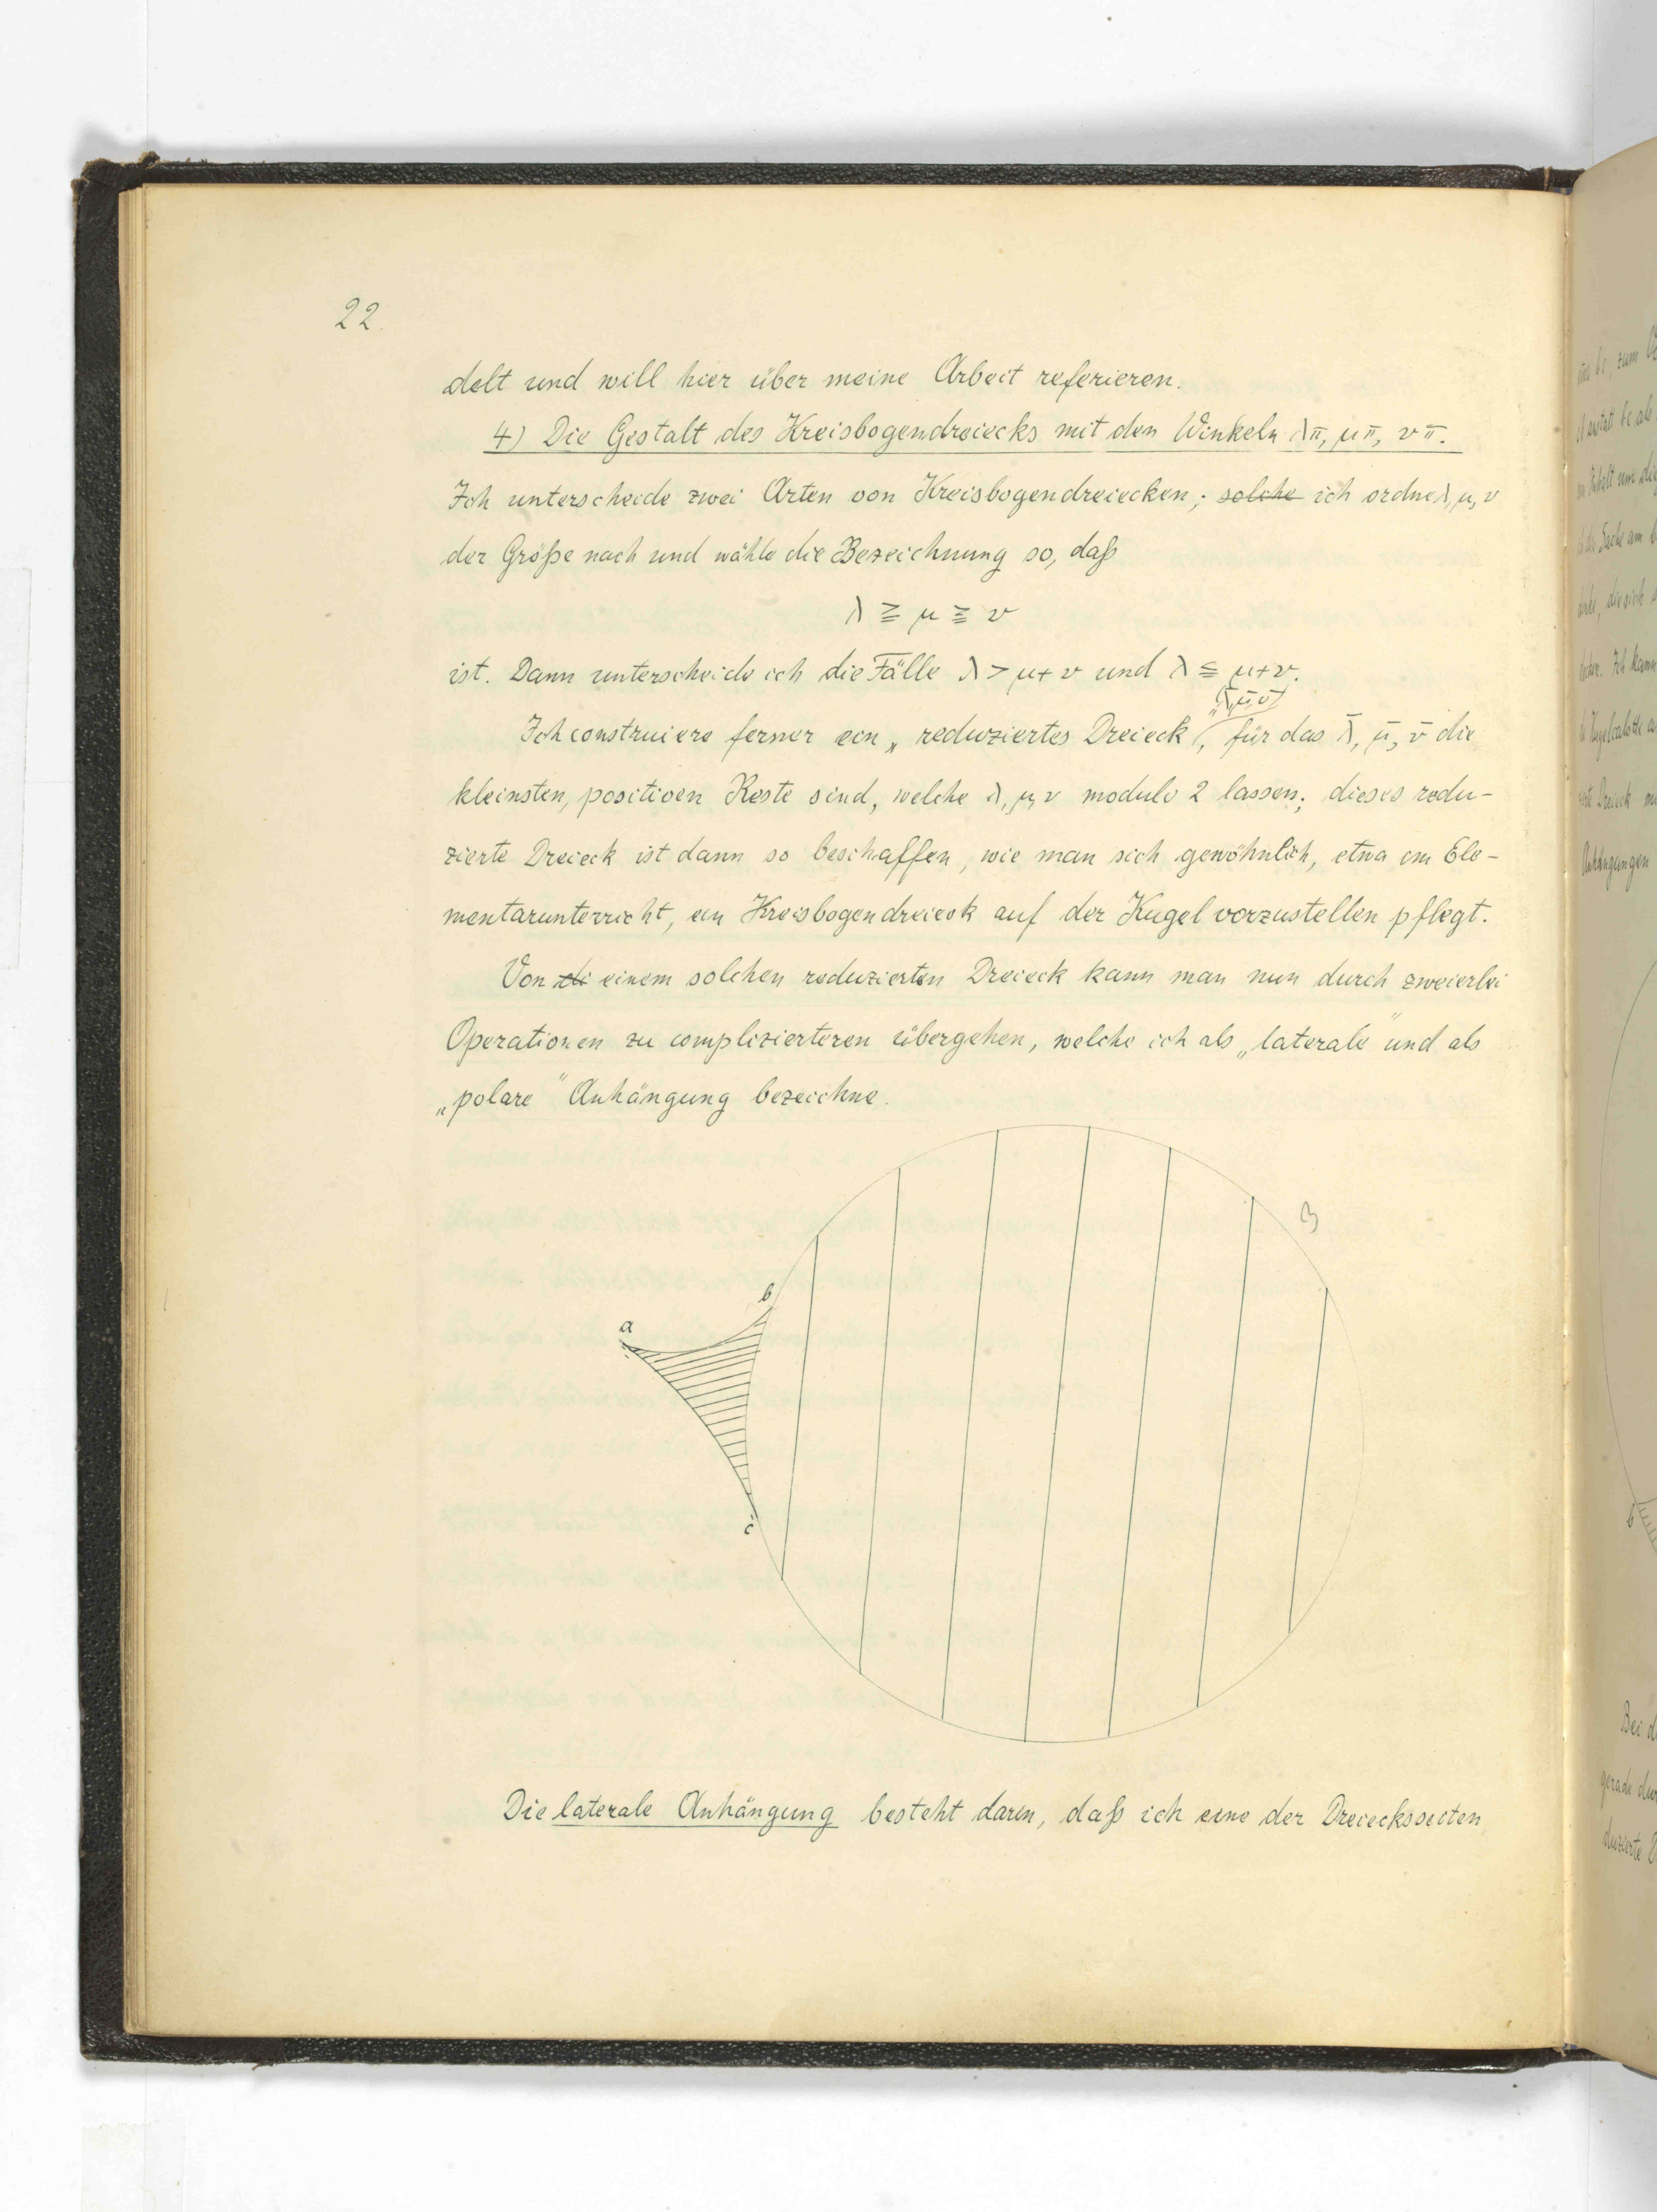 22.
delt und will hier über meine Arbeit referieren.
4) Die Gestalt des Kreisbogendreiecks mit den Winkeln λπ, μπ, νπ.
Ich unterscheide zwei Arten von Kreisbogendreiecken; solche ich ordne λ, μ, ν
der Größe nach und wähle die Bezeichnung so, daß
λ ≧ μ ≧ ν
ist. Dann unterscheide ich die Fälle λ > μ + ν und λ ≦ μ + ν.
"(λ̄, μ̄, ν̄)
Ich construiere ferner ein „reduziertes Dreieck, für das λ̄, μ̄, ν̄ die
kleinsten, positiven Reste sind, welche λ, μ, ν modulo 2 lassen; dieses redu-
zierte Dreieck ist dann so beschaffen, wie man sich gewöhnlich, etwa im Ele-
mentarunterricht, ein Kreisbogendreieck auf der Kugel vorzustellen pflegt.
Von einem solchen reduzierten Dreieck kann man nun durch zweierlei
Operationen zu complizierteren übergehen, welche ich als „laterale" und als
„polare" Anhängung bezeichne.
b
a
c
Die laterale Anhängung besteht darin, daß ich eine der Dreiecksseiten